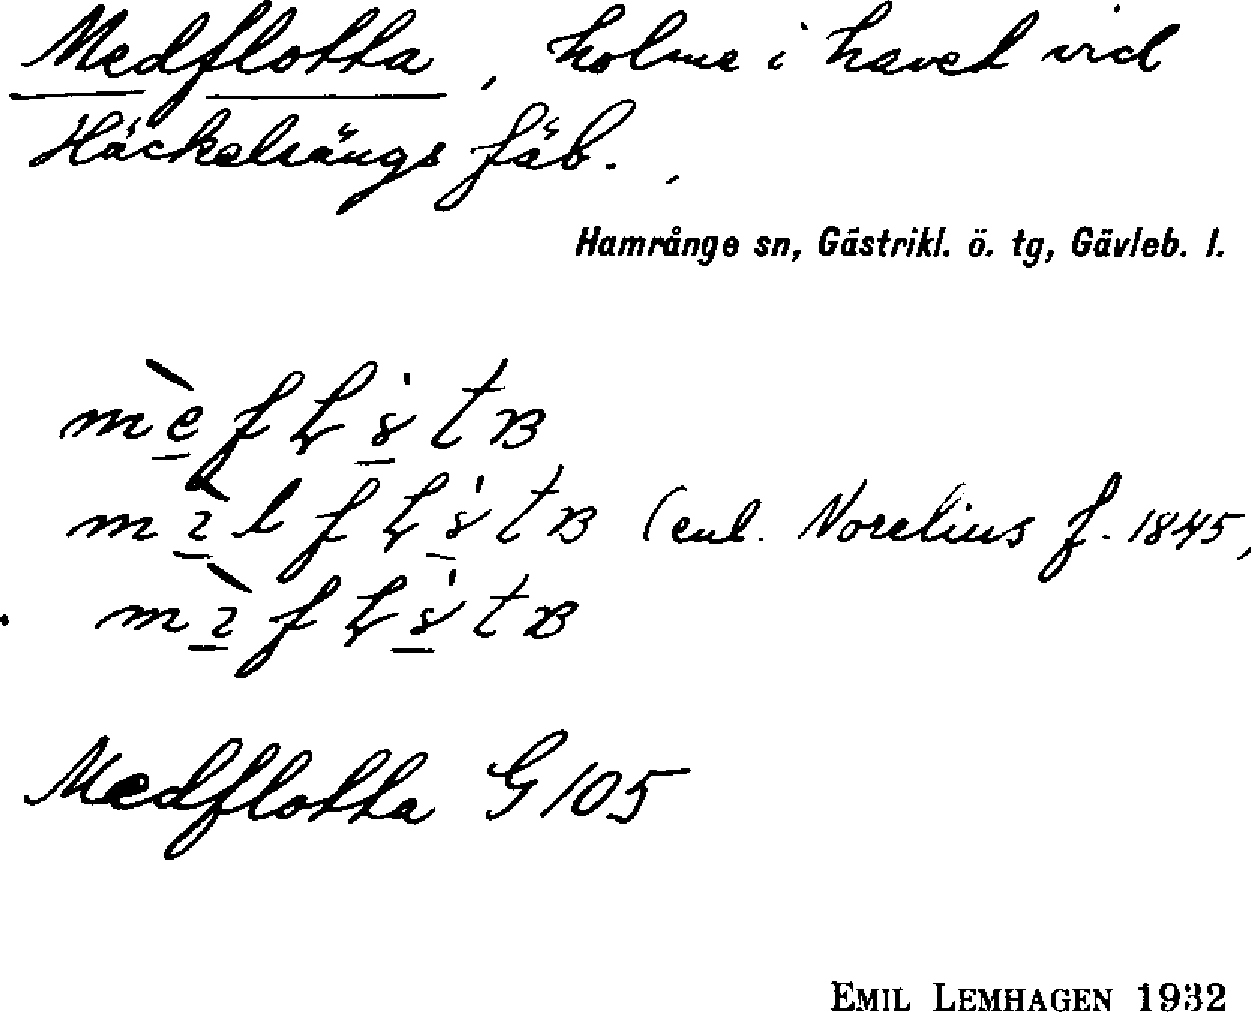 Medflotta, holme i havet vid
Häckelsängs fäb.
Hamrånge sn, Gästrikl. ö. tg, Gävleb. l.
(enl. Norelius f. 1845,
Medflotta G105
EMIL LEMHAGEN 1932